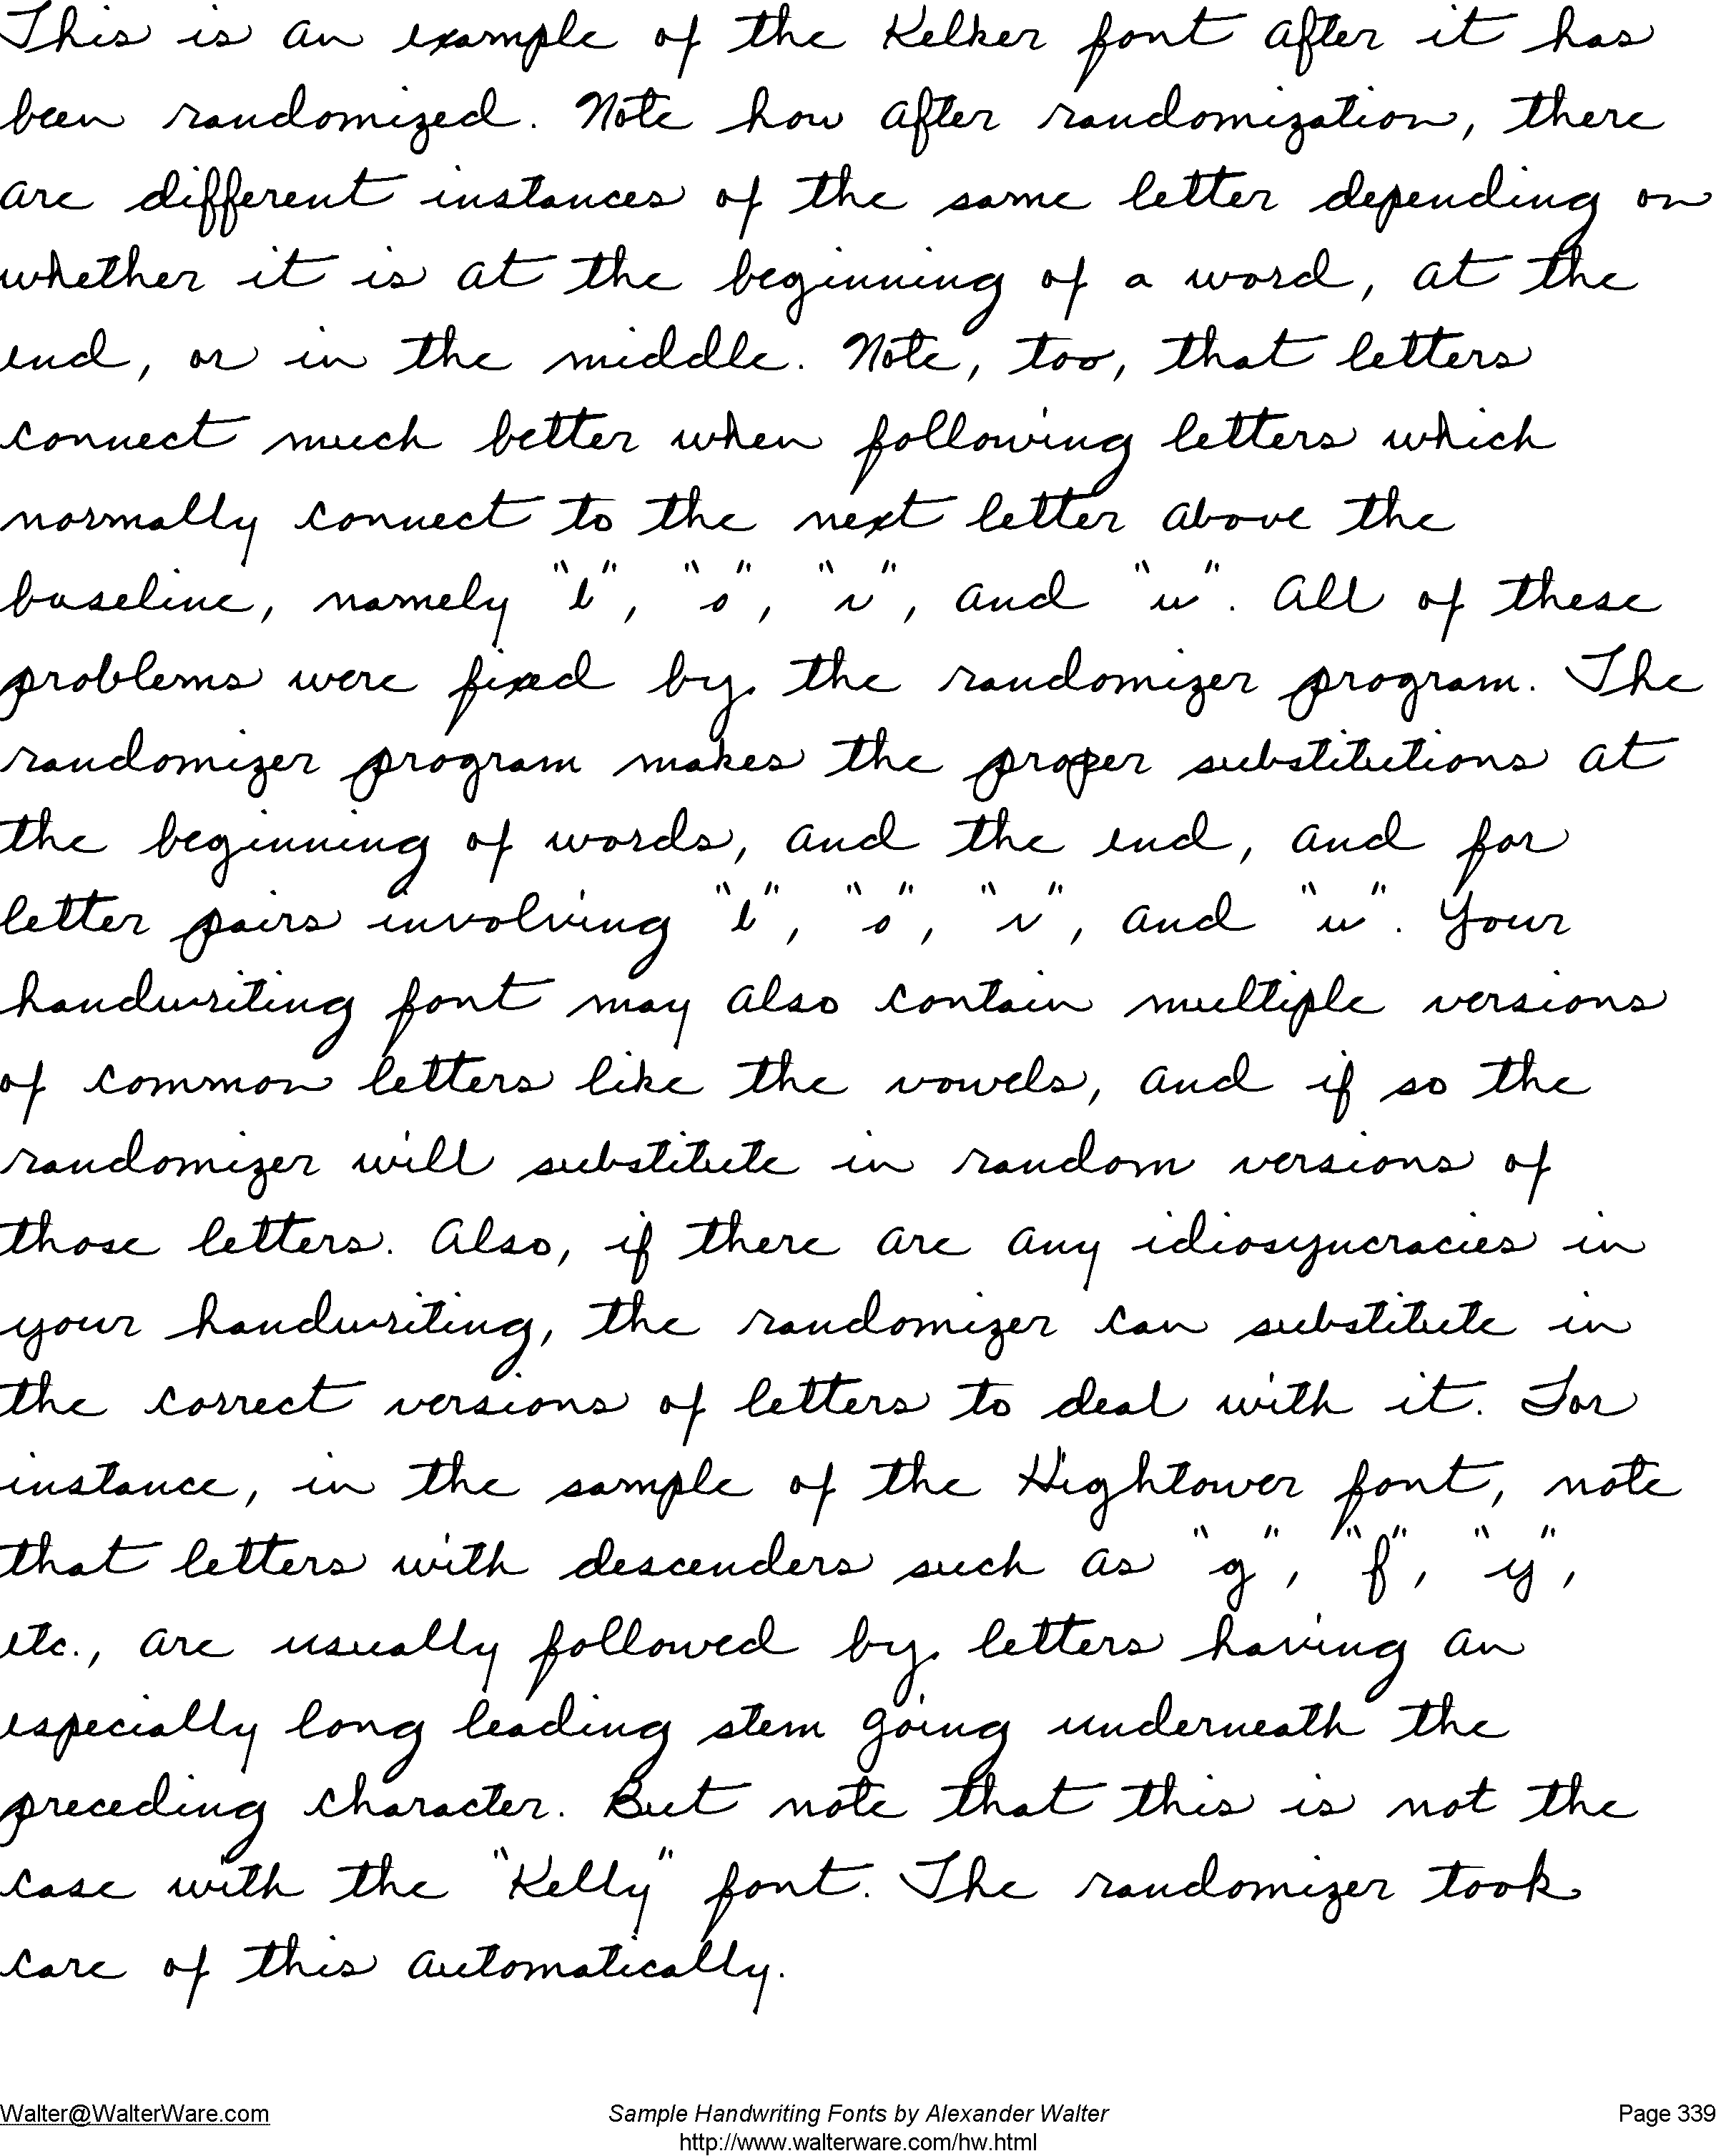 This is an example of the Kelker font after it has
been randomized. Note how after randomization, there
are different instances of the same letter depending on
whether it is at the beginning of a word, at the
end, or in the middle. Note, too, that letters
connect much better when following letters which
normally connect to the next letter above the
baseline, namely "b", "o", "v", and "w". All of these
problems were fixed by the randomizer program. The
randomizer program makes the proper substitutions at
the beginning of words, and the end, and for
letter pairs involving "b", "o", "v", and "w". Your
handwriting font may also contain multiple versions
of common letters like the vowels, and if so the
randomizer will substitute in random versions of
those letters. Also, if there are any idiosyncracies in
your handwriting, the randomizer can substitute in
the correct versions of letters to deal with it. For
instance, in the sample of the Hightower font, note
that letters with descenders such as "g", "f", "y",
etc., are usually followed by letters having an
especially long leading stem going underneath the
preceding character. But note that this is not the
case with the "Kelly" font. The randomizer took
care of this automatically.
Walter@WalterWare.com Sample Handwriting Fonts by Alexander Walter Page 339
http://www.walterware.com/hw.html